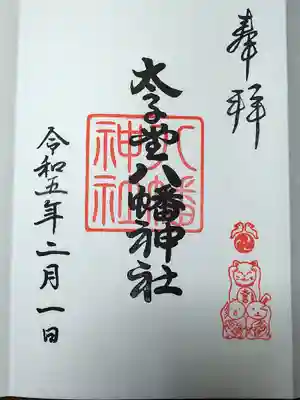 奉拝
太子堂八幡神社
八幡神社
令和五年二月一日